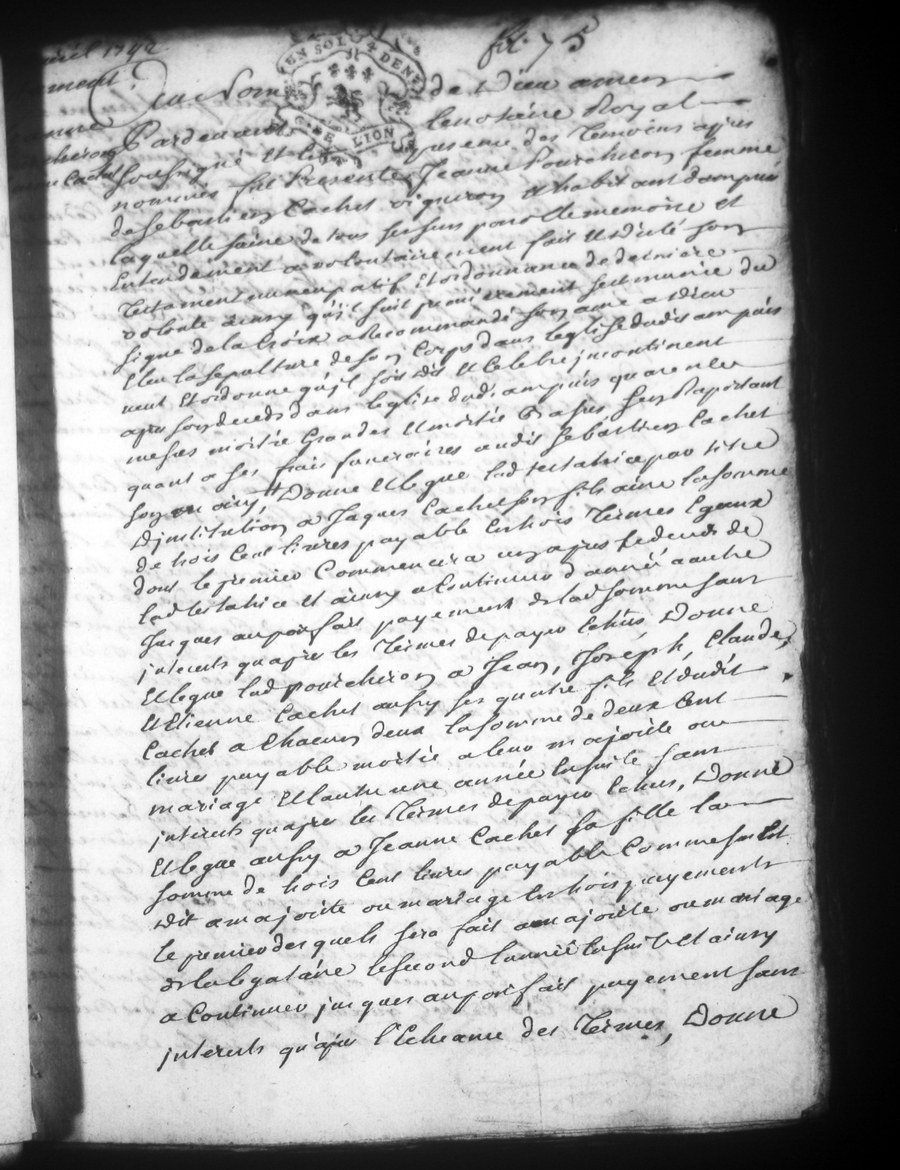 avril 1742
fol. 75
EN SOL 4 DEN
LION
Au Nom de Dieu amen
Pardevant le notaire Royal
soussigné et le presence des Temoins apres
nommés fut Presente Jeanne Pourcheron femme
de Sebastien Cachet vigneron et habitant dampuis
laquelle saine de tous ses sens parolle memoire et
Entendement a volontairement fait et dicté son
Testament nuncupatif et ordonnance de derniere
volonté ainsy qu'il suit premierement sest munie du
signe de la Croix a Recommandé son ame a Dieu
Eleu la sepulture de son Corps dans leglise dudit ampuis
veut et ordonne qu'il soit dit et Celebré incontinent
apres son deceds dans leglise dud. ampuis quarente
messes moitié Grandes et moitié Basses sen Raportant
quant a ses frais funeraires audit Sebastien Cachet
son mary, Donne et legue lad testatrice par titre
d'institution a Jaques Cachet son fils aîné la somme
de trois Cent livres payable En trois Termes Egaux
dont le premier Commencera un an apres le deceds de
lad testatrice et ainsy a Continuer d'année a autre
Jusques au parfait payement de lad somme sans
interests qu'apres les Termes de payer Echus, Donne
et legue lad pourcheron a Jean, Joseph, Claude,
et Etienne Cachet aussy ses quatre fils et dudit
Cachet a Chacun deux la somme de deux Cent
livres payable moitié a leur majorité ou
mariage et lautre une année ensuite sans
interests quapres les Termes de payer Echus, Donne
et legue aussy a Jeanne Cachet sa fille la
somme de trois Cent livres payable Comme sus est
dit a majorité ou mariage En trois payements
le premier des quels sera fait a majorité ou mariage
de la legataire le second lannée Ensuite et ainsy
a Continuer jusques au parfait payement sans
interests qu'apres l'Echeance des Termes, Donne